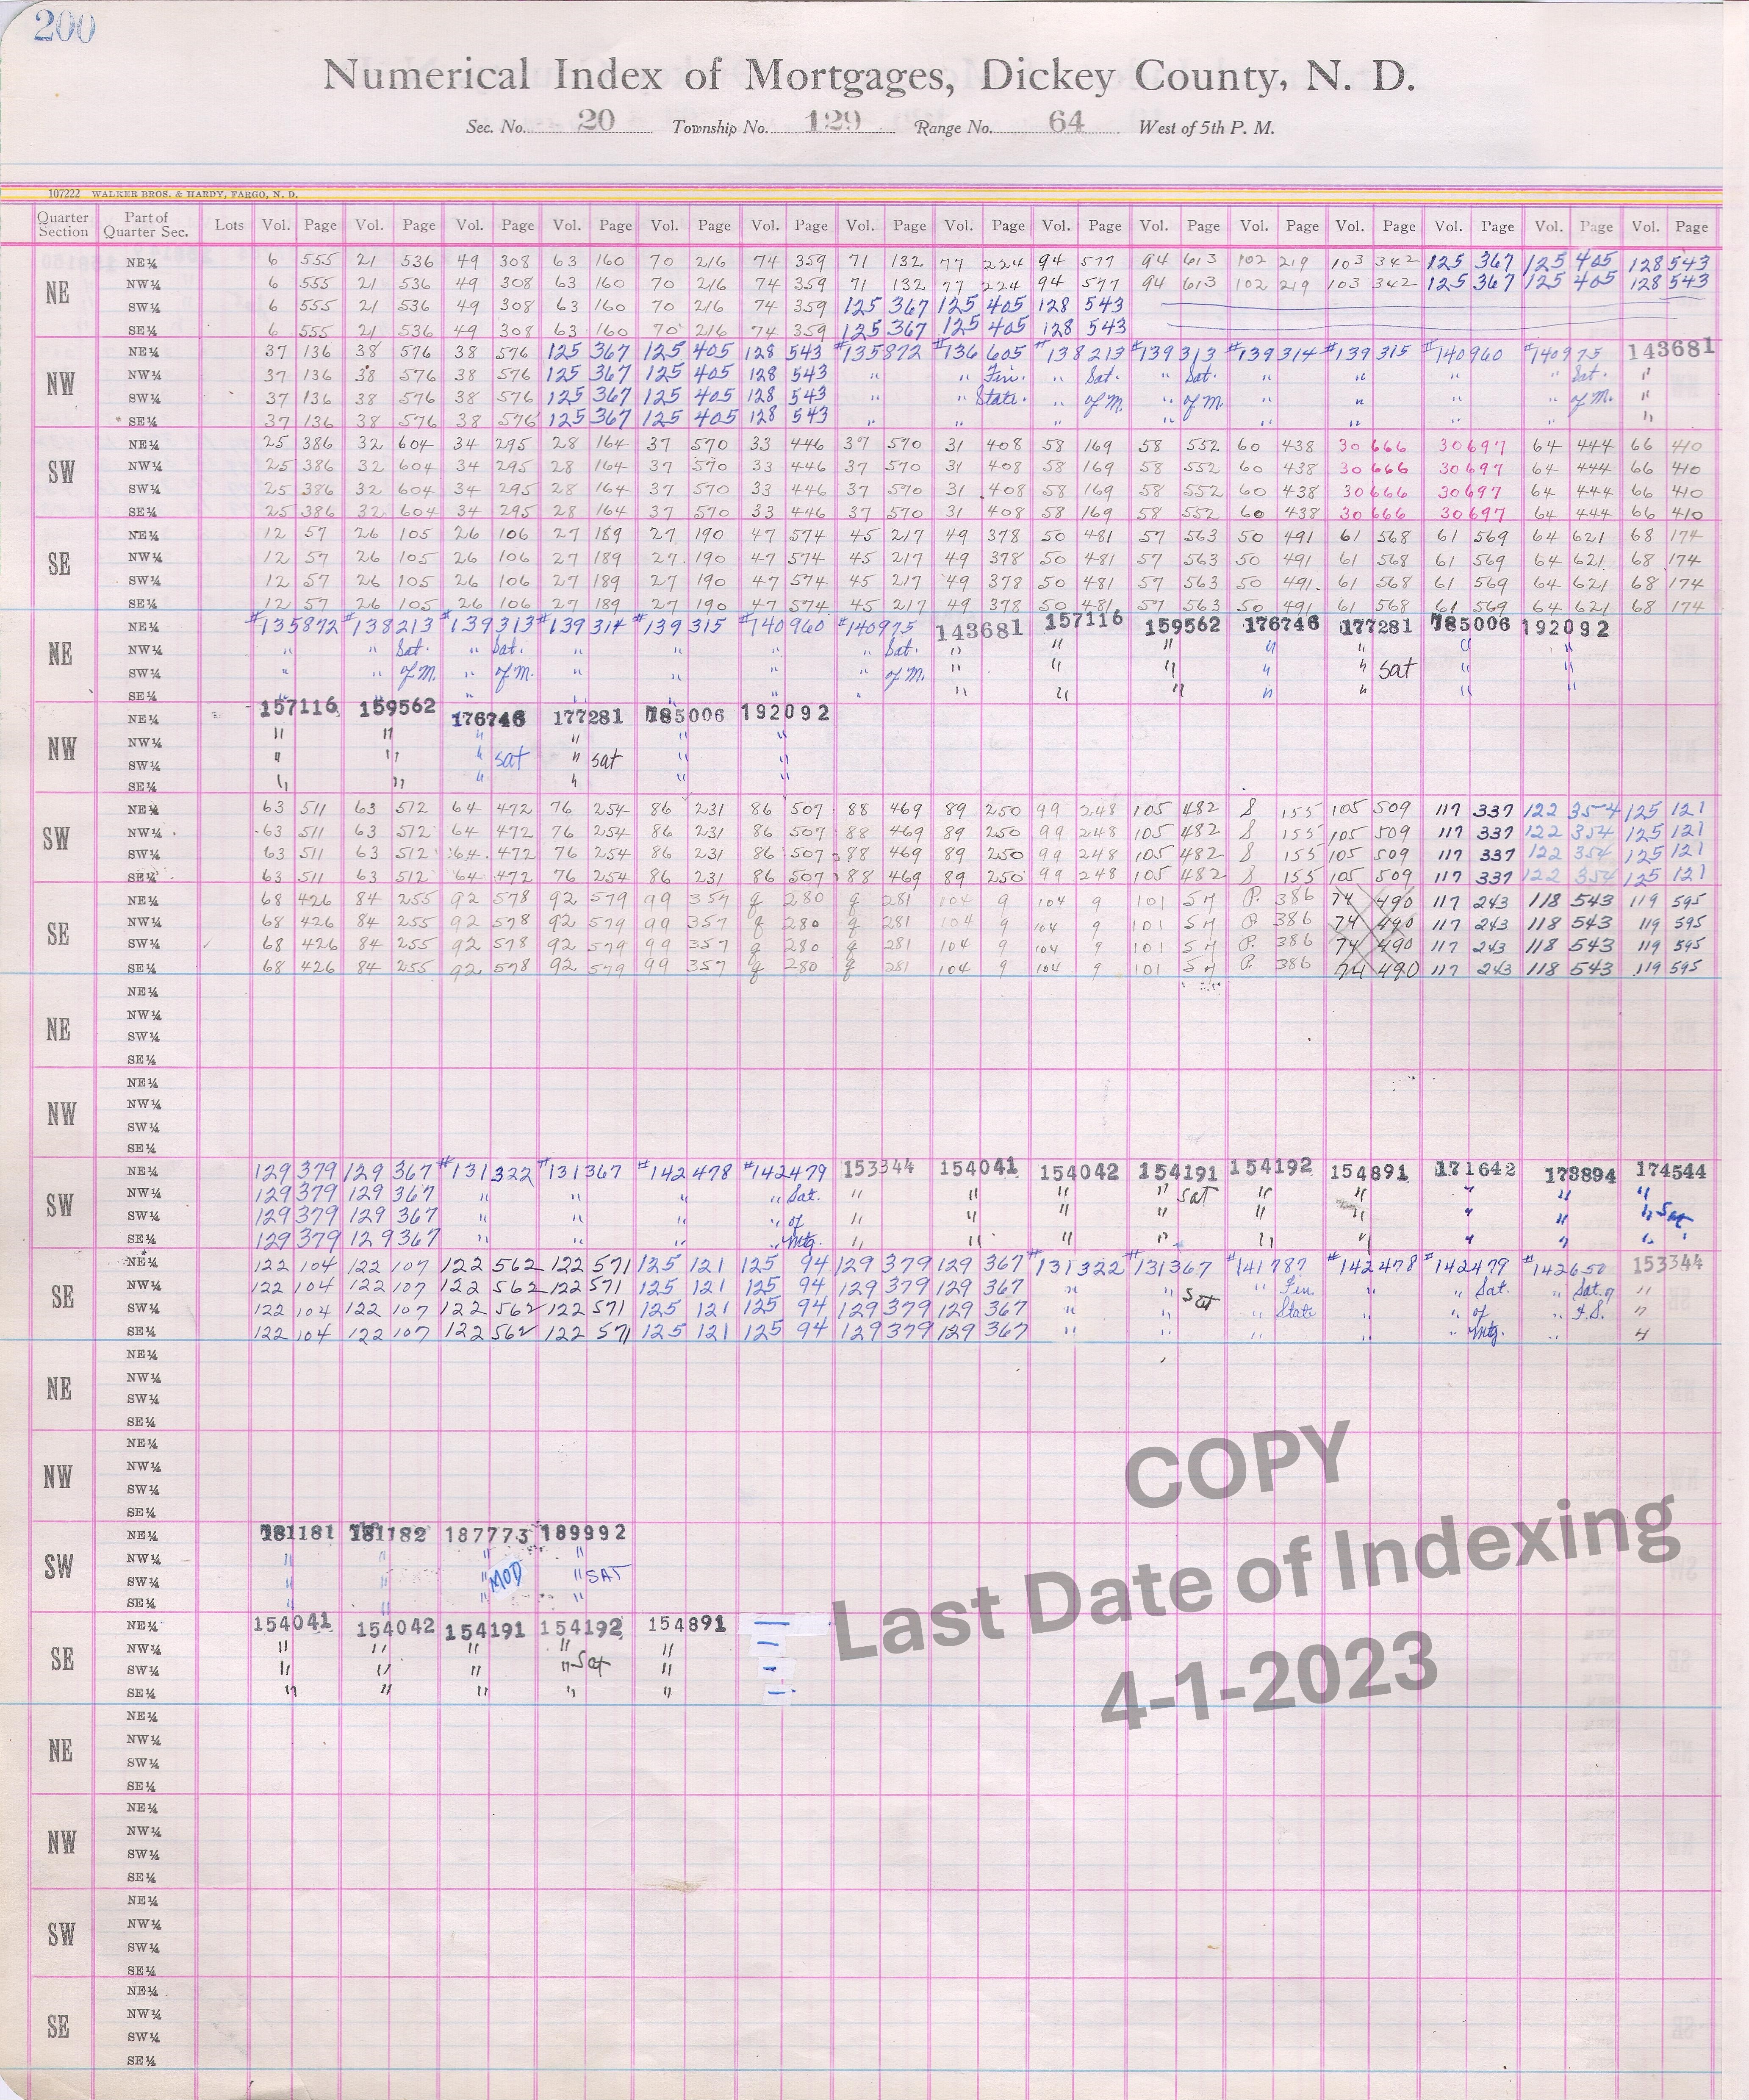 200
Numerical Index of Mortgages, Dickey County, N. D.
Sec. No. 20 Township No. 129 Range No. 64 West of 5th P. M.
107222 WALKER BROS. & HARDY, FARGO, N. D.
Quarter Section Part of Quarter Sec. Lots Vol. Page Vol. Page Vol. Page Vol. Page Vol. Page Vol. Page Vol. Page Vol. Page Vol. Page Vol. Page Vol. Page Vol. Page Vol. Page Vol. Page Vol. Page
NE
NE¼ 6 555 21 536 49 308 63 160 70 216 74 359 71 132 77 224 94 577 94 613 102 219 103 342 125 367 125 405 128 543
NW¼ 6 555 21 536 49 308 63 160 70 216 74 359 71 132 77 224 94 577 94 613 102 219 103 342 125 367 125 405 128 543
SW¼ 6 555 21 536 49 308 63 160 70 216 74 359 125 367 125 405 128 543
SE¼ 6 555 21 536 49 308 63 160 70 216 74 359 125 367 125 405 128 543
NW
NE¼ 37 136 38 576 38 576 125 367 125 405 128 543 #135872 #136605 #138213 #139313 #139314 #139315 #140960 #140975 143681
NW¼ 37 136 38 576 38 576 125 367 125 405 128 543 " " Fin. " Sat. " Sat. " " " " Sat. "
SW¼ 37 136 38 576 38 576 125 367 125 405 128 543 " " State. " of M. " of M. " " " " of M. "
SE¼ 37 136 38 576 38 576 125 367 125 405 128 543 " " " " " " " " "
SW
NE¼ 25 386 32 604 34 295 28 164 37 570 33 446 37 570 31 408 58 169 58 552 60 438 30 666 30 697 64 444 66 410
NW¼ 25 386 32 604 34 295 28 164 37 570 33 446 37 570 31 408 58 169 58 552 60 438 30 666 30 697 64 444 66 410
SW¼ 25 386 32 604 34 295 28 164 37 570 33 446 37 570 31 408 58 169 58 552 60 438 30 666 30 697 64 444 66 410
SE¼ 25 386 32 604 34 295 28 164 37 570 33 446 37 570 31 408 58 169 58 552 60 438 30 666 30 697 64 444 66 410
SE
NE¼ 12 57 26 105 26 106 27 189 27 190 47 574 45 217 49 378 50 481 57 563 50 491 61 568 61 569 64 621 68 174
NW¼ 12 57 26 105 26 106 27 189 27 190 47 574 45 217 49 378 50 481 57 563 50 491 61 568 61 569 64 621 68 174
SW¼ 12 57 26 105 26 106 27 189 27 190 47 574 45 217 49 378 50 481 57 563 50 491 61 568 61 569 64 621 68 174
SE¼ 12 57 26 105 26 106 27 189 27 190 47 574 45 217 49 378 50 481 57 563 50 491 61 568 61 569 64 621 68 174
NE
NE¼ #135872 #138213 #139313 #139314 #139315 #140960 #140975 143681 157116 159562 176746 177281 185006 192092
NW¼ " " Sat. " Sat. " " " " Sat. " " " " " " "
SW¼ " " of M. " of M. " " " " of M. " " " " " Sat " "
SE¼ " " " " " " " " " " " " " "
NW
NE¼ 157116 159562 176746 177281 185006 192092
NW¼ " " " " " "
SW¼ " " " sat " sat " "
SE¼ " " " " " "
SW
NE¼ 63 511 63 512 64 472 76 254 86 231 86 507 88 469 89 250 99 248 105 482 S 155 105 509 117 337 122 354 125 121
NW¼ 63 511 63 512 64 472 76 254 86 231 86 507 88 469 89 250 99 248 105 482 S 155 105 509 117 337 122 354 125 121
SW¼ 63 511 63 512 64 472 76 254 86 231 86 507 88 469 89 250 99 248 105 482 S 155 105 509 117 337 122 354 125 121
SE¼ 63 511 63 512 64 472 76 254 86 231 86 507 88 469 89 250 99 248 105 482 S 155 105 509 117 337 122 354 125 121
SE
NE¼ 68 426 84 255 92 578 92 579 99 357 g 280 g 281 104 9 104 9 101 P. 386 74 490 117 243 118 543 119 595
NW¼ 68 426 84 255 92 578 92 579 99 357 g 280 g 281 104 9 104 9 101 P 386 74 490 117 243 118 543 119 595
SW¼ 68 426 84 255 92 578 92 579 99 357 g 280 g 281 104 9 104 9 101 P. 386 74 490 117 243 118 543 119 595
SE¼ 68 426 84 255 92 578 92 579 99 357 g 280 g 281 104 9 104 9 101 P. 386 74 490 117 243 118 543 119 595
NE
NE¼
NW¼
SW¼
SE¼
NW
NE¼
NW¼
SW¼
SE¼
SW
NE¼ 129 379 129 367 #131322 #131367 #142478 #142479 153344 154041 154042 154191 154192 154891 171642 173894 174544
NW¼ 129 379 129 367 " " " " Sat. " " " " Sat " " " " "
SW¼ 129 379 129 367 " " " " of " " " " " " " " " Sat
SE¼ 129 379 129 367 " " " " Mtg. " " " " " " " " "
SE
NE¼ 122 104 122 107 122 562 122 571 125 121 125 94 129 379 129 367 #131322 #131367 #141787 #142478 #142479 #142650 153344
NW¼ 122 104 122 107 122 562 122 571 125 121 125 94 129 379 129 367 " " Sat " Fin. " " Sat. " Sat. of "
SW¼ 122 104 122 107 122 562 122 571 125 121 125 94 129 379 129 367 " " " State " " of " F.S. "
SE¼ 122 104 122 107 122 562 122 571 125 121 125 94 129 379 129 367 " " " " " Mtg. " "
NE
NE¼
NW¼
SW¼
SE¼
NW
NE¼
NW¼
SW¼
SE¼
SW
NE¼ 181181 181182 187773 189992
NW¼ " " " "
SW¼ " " " MOD " SAT
SE¼ " " " "
SE
NE¼ 154041 154042 154191 154192 154891
NW¼ " " " " "
SW¼ " " " " Sat "
SE¼ " " " " "
NE
NE¼
NW¼
SW¼
SE¼
NW
NE¼
NW¼
SW¼
SE¼
SW
NE¼
NW¼
SW¼
SE¼
SE
NE¼
NW¼
SW¼
SE¼
COPY
Last Date of Indexing
4-1-2023